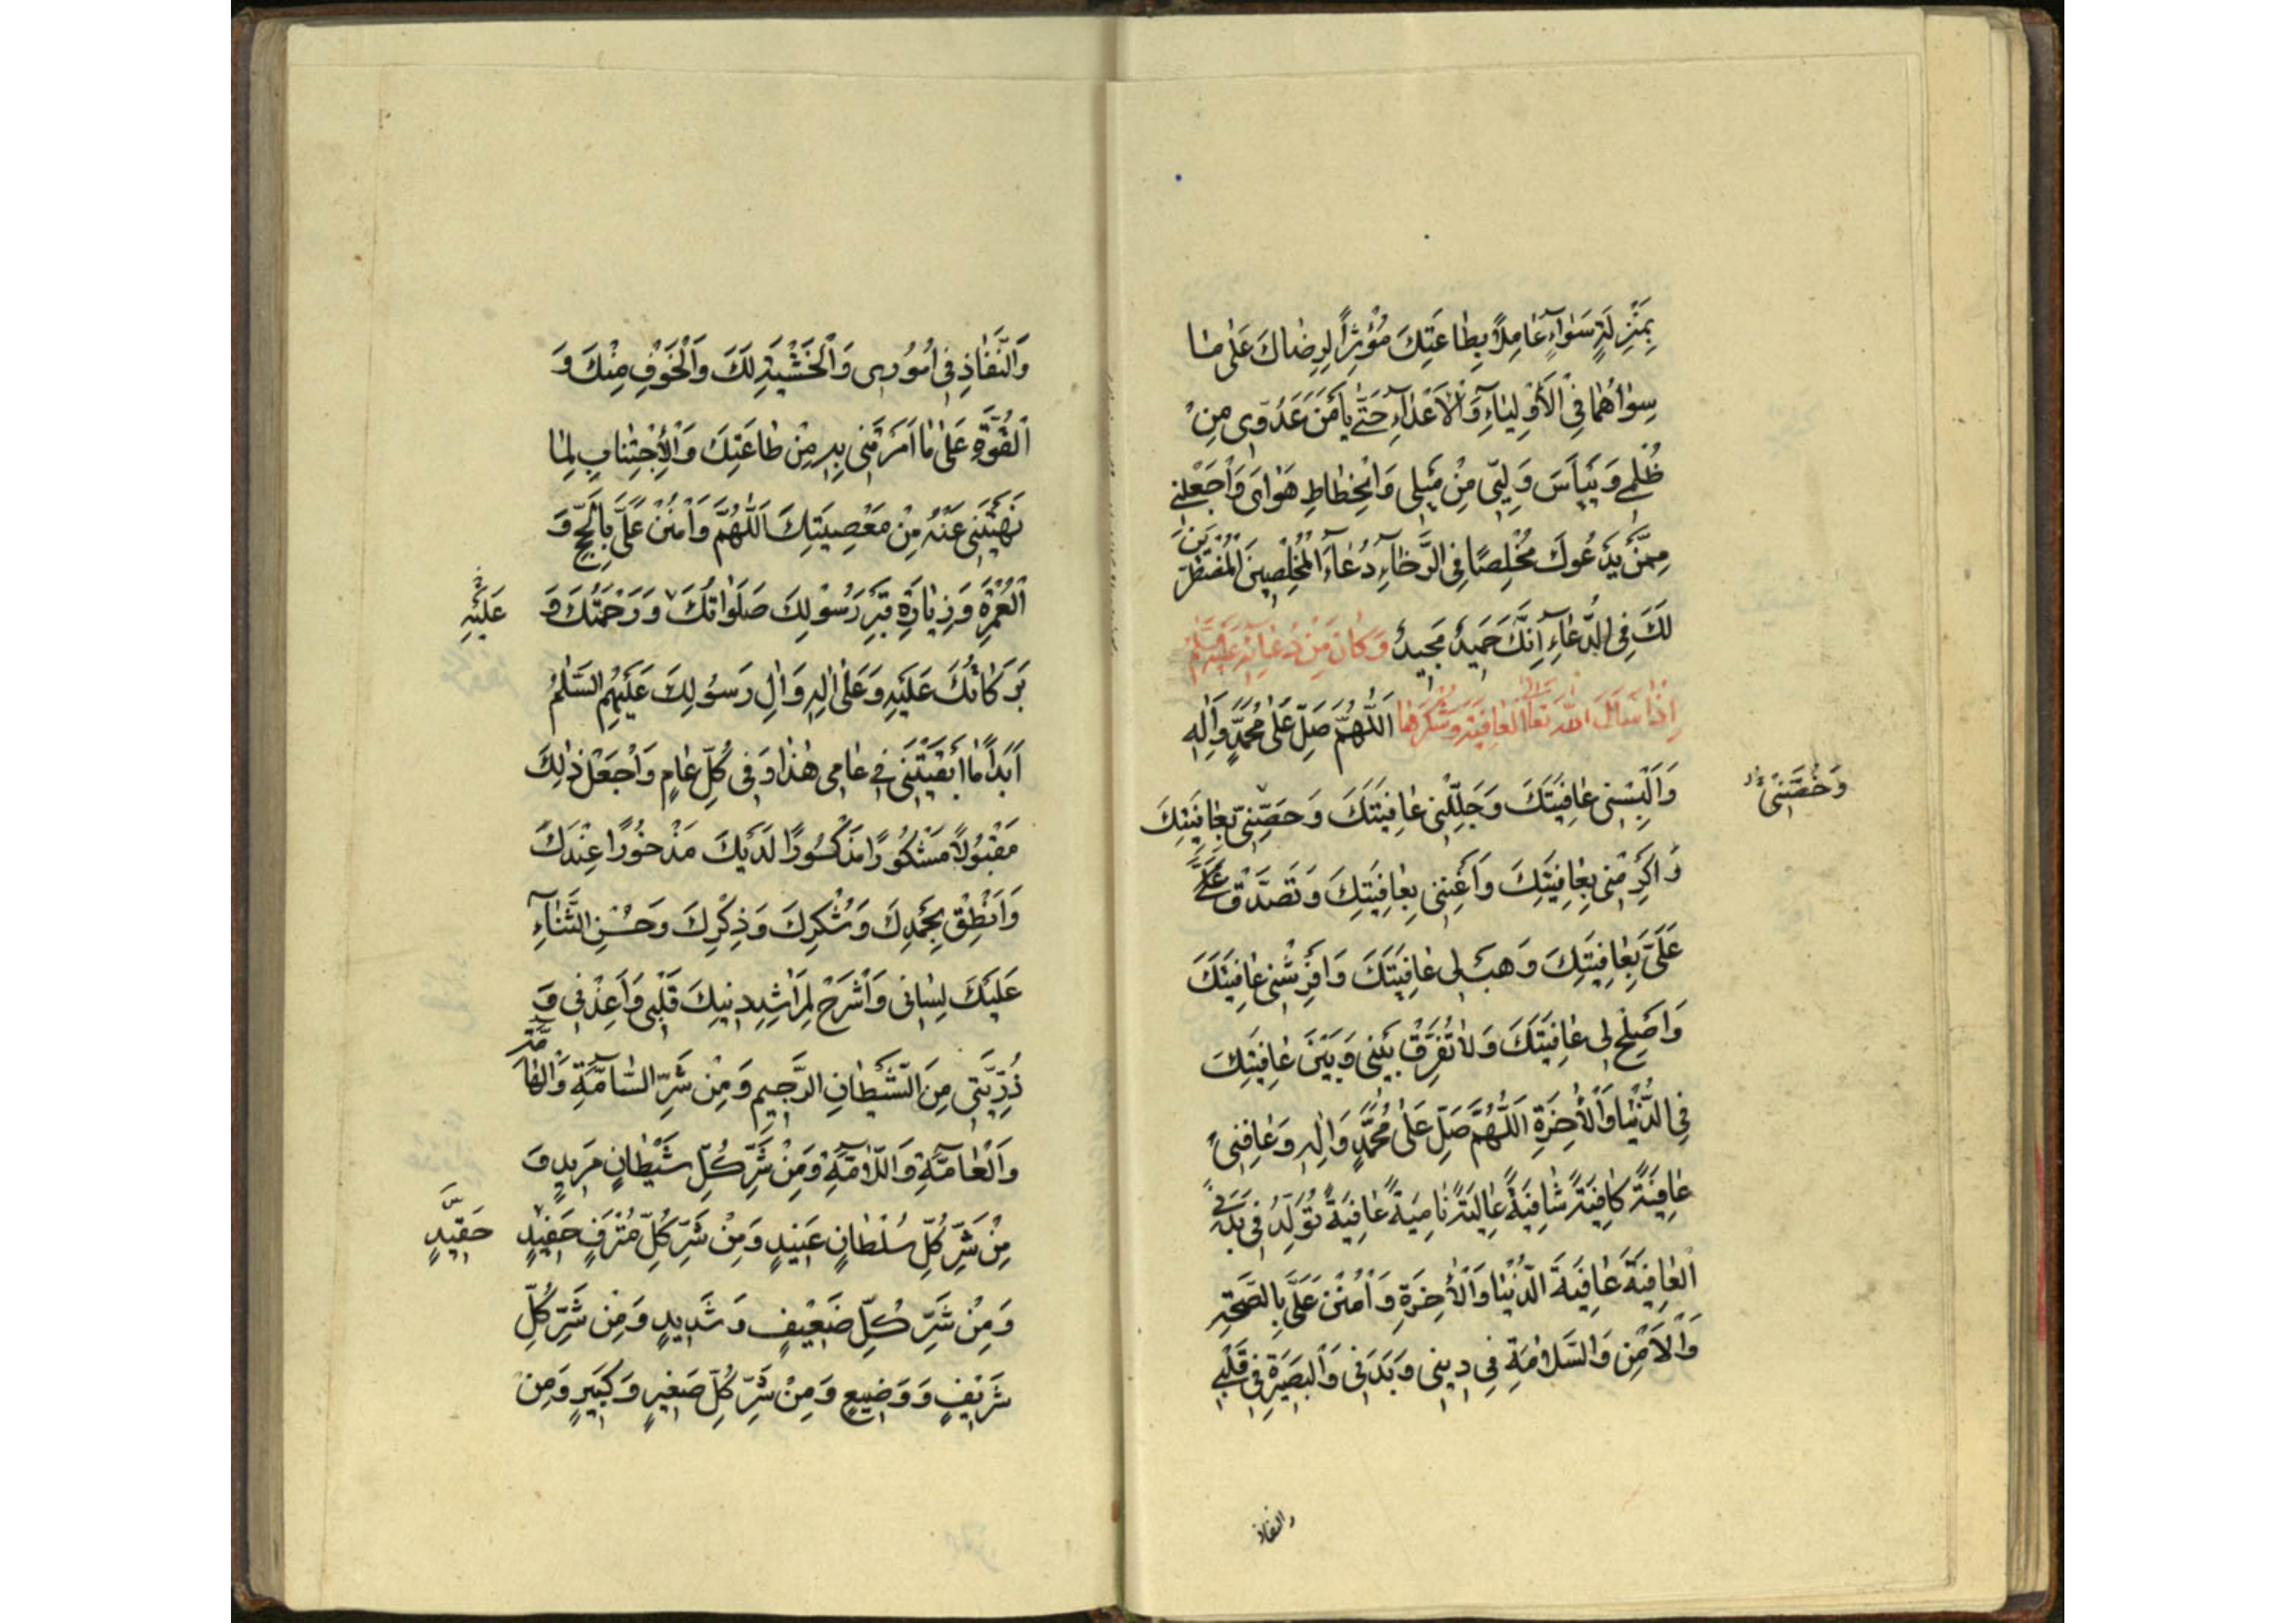 بِمَنْزِلَةٍ سَوٰآءٍ عٰامِلًا بِطٰاعَتِكَ مُؤْثِرًا لِرِضٰاكَ عَلٰى مٰا
سِوٰاهُمٰا فِى الْأَوْلِيٰآءِ وَالْأَعْدٰآءِ حَتّٰى يَأْمَنَ عَدُوّى مِنْ
ظُلْمى وَيَيْأَسَ وَلِيّى مِنْ مَيْلى وَانْحِطٰاطِ هَوٰاىَ وَاجْعَلْنى
مِمَّنْ يَدْعُوكَ مُخْلِصًا فِى الرَّخٰآءِ دُعٰآءَ الْمُخْلِصينَ الْمُضْطَرّينَ
لَكَ فِى الدُّعٰآءِ اِنَّكَ حَميدٌ مَجيدٌ وَكٰانَ مِنْ دُعٰائِهِ عَلَيْهِ السَّلٰمُ
اِذٰا سَأَلَ اللهَ تَعٰالَى الْعٰافِيَةَ وَشُكْرَهٰا اَللّٰهُمَّ صَلِّ عَلٰى مُحَمَّدٍ وَاٰلِهِ
وَاَلْبِسْنى عٰافِيَتَكَ وَجَلِّلْنى عٰافِيَتَكَ وَحَصِّنّى بِعٰافِيَتِكَ
وَخُصَّنى
وَاَكْرِمْنى بِعٰافِيَتِكَ وَاَغْنِنى بِعٰافِيَتِكَ وَتَصَدَّقْ عَلَىَّ
عَلَىَّ بِعٰافِيَتِكَ وَهَبْ لى عٰافِيَتَكَ وَافْرِشْنى عٰافِيَتَكَ
وَاَصْلِحْ لى عٰافِيَتَكَ وَلٰا تُفَرِّقْ بَيْنى وَبَيْنَ عٰافِيَتِكَ
فِى الدُّنْيٰا وَالْأٰخِرَةِ اَللّٰهُمَّ صَلِّ عَلٰى مُحَمَّدٍ وَاٰلِهِ وَعٰافِنى
عٰافِيَةً كٰافِيَةً شٰافِيَةً عٰالِيَةً نٰامِيَةً عٰافِيَةً تُوَلِّدُ فى بَدَنى
الْعٰافِيَةَ عٰافِيَةَ الدُّنْيٰا وَالْأٰخِرَةِ وَامْنُنْ عَلَىَّ بِالصِّحَّةِ
وَالْأَمْنِ وَالسَّلٰامَةِ فى دينى وَبَدَنى وَالْبَصيرَةِ فى قَلْبى
والنفاذ
وَالنَّفٰاذِ فى اُمُورى وَالْخَشْيَةِ لَكَ وَالْخَوْفِ مِنْكَ وَ
الْقُوَّةِ عَلٰى مٰا اَمَرْتَنى بِهِ مِنْ طٰاعَتِكَ وَالْإِجْتِنٰابِ لِمٰا
نَهَيْتَنى عَنْهُ مِنْ مَعْصِيَتِكَ اَللّٰهُمَّ وَامْنُنْ عَلَىَّ بِالْحَجِّ وَ
الْعُمْرَةِ وَزِيٰارَةِ قَبْرِ رَسُولِكَ صَلَوٰاتُكَ وَرَحْمَتُكَ وَ
عَلَيْهِ
بَرَكٰاتُكَ عَلَيْهِ وَعَلٰى اٰلِهِ وَاٰلِ رَسُولِكَ عَلَيْهِمُ السَّلٰمُ
اَبَدًا مٰا اَبْقَيْتَنى فى عٰامى هٰذٰا وَفى كُلِّ عٰامٍ وَاجْعَلْ ذٰلِكَ
مَقْبُولًا مَشْكُورًا مَذْكُورًا لَدَيْكَ مَذْخُورًا عِنْدَكَ
وَاَنْطِقْ بِحَمْدِكَ وَشُكْرِكَ وَذِكْرِكَ وَحُسْنِ الثَّنٰآءِ
عَلَيْكَ لِسٰانى وَاشْرَحْ لِمَرٰاشِدِ دينِكَ قَلْبى وَاَعِذْنى وَ
ذُرِّيَّتى مِنَ الشَّيْطٰانِ الرَّجيمِ وَمِنْ شَرِّ السّٰآمَّةِ وَالْهٰآمَّةِ
وَالْعٰآمَّةِ وَاللّٰآمَّةِ وَمِنْ شَرِّ كُلِّ شَيْطٰانٍ مَريدٍ وَ
مِنْ شَرِّ كُلِّ سُلْطٰانٍ عَنيدٍ وَمِنْ شَرِّ كُلِّ مُتْرَفٍ حَفيدٍ
حَقيدٍ
وَمِنْ شَرِّ كُلِّ ضَعيفٍ وَشَديدٍ وَمِنْ شَرِّ كُلِّ
شَريفٍ وَوَضيعٍ وَمِنْ شَرِّ كُلِّ صَغيرٍ وَكَبيرٍ وَمِنْ